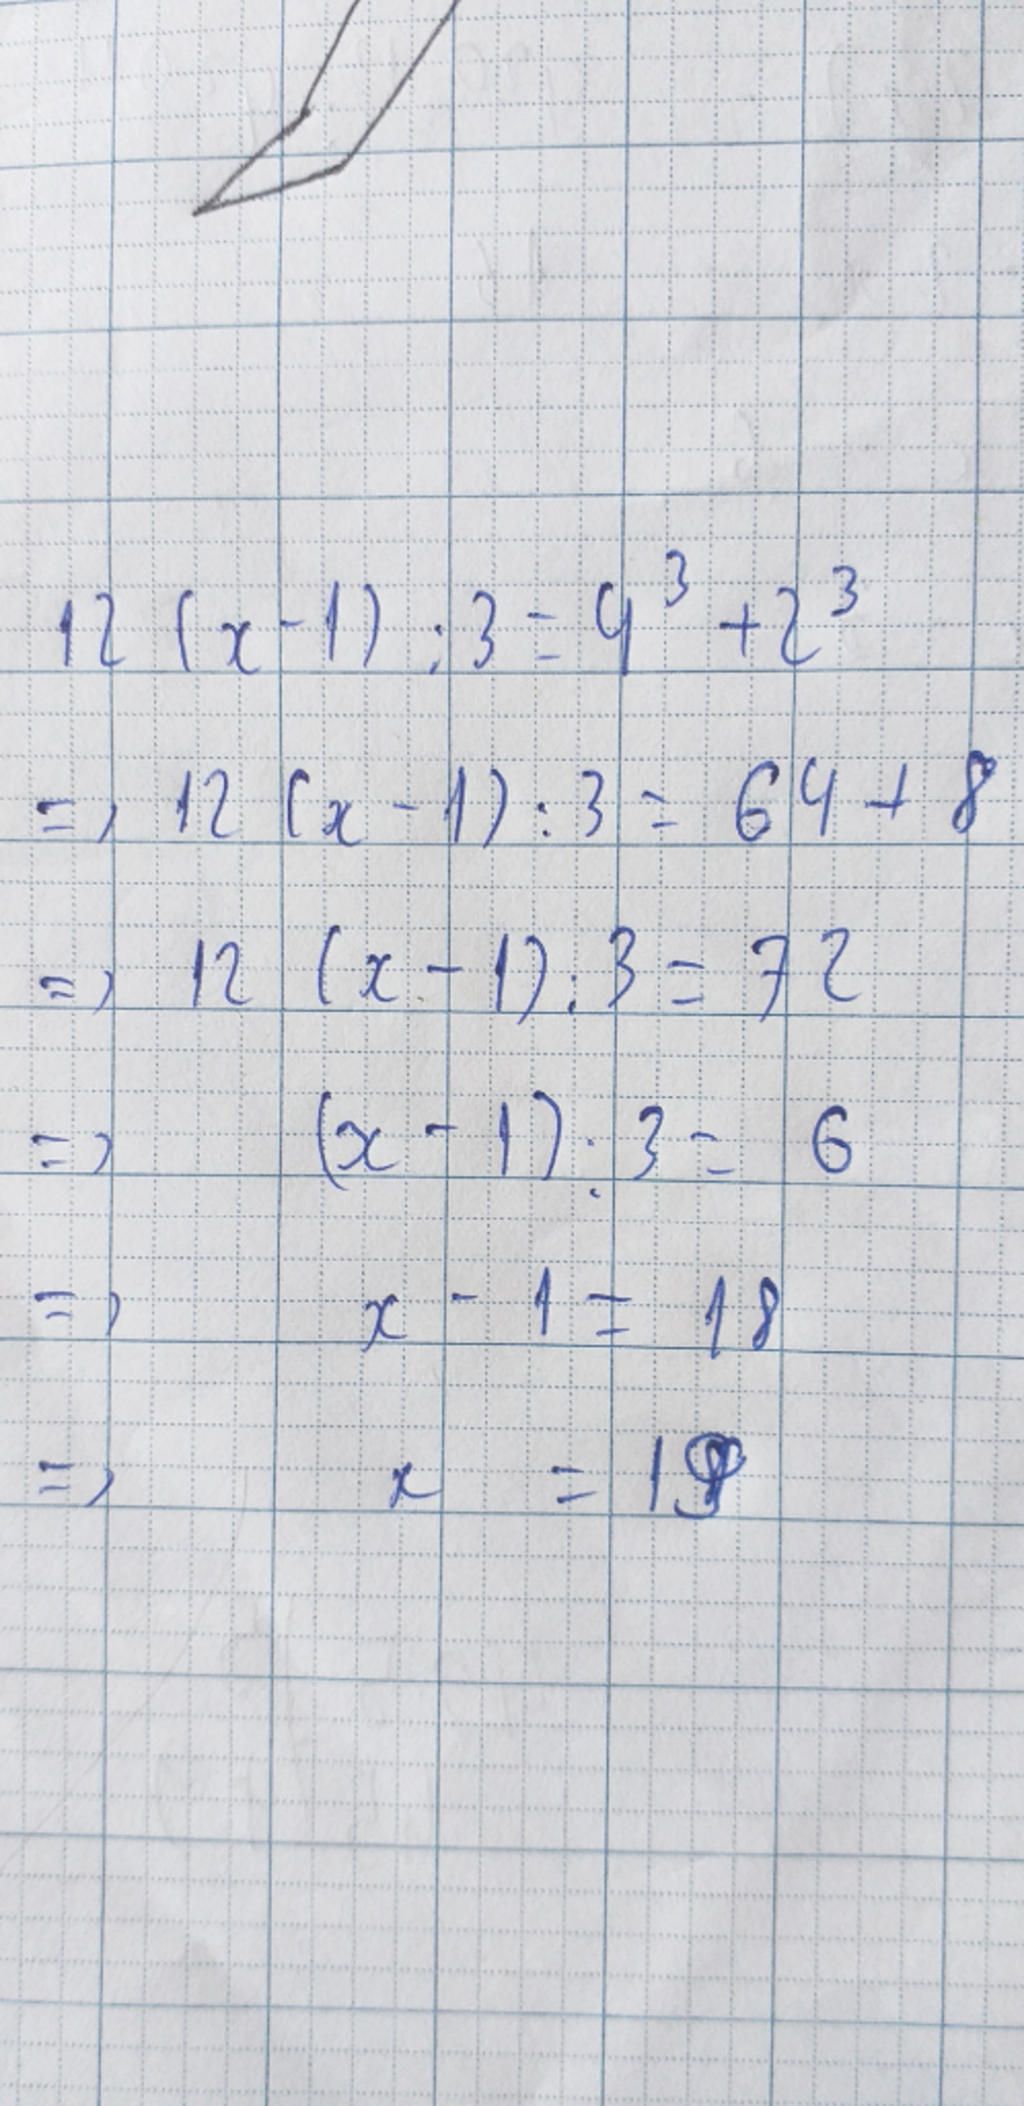 12 (x-1) : 3 = 4³ + 2³
=> 12 (x - 1) : 3 = 64 + 8
=> 12 (x - 1) : 3 = 72
=> (x - 1) : 3 = 6
=> x - 1 = 18
=> x = 19